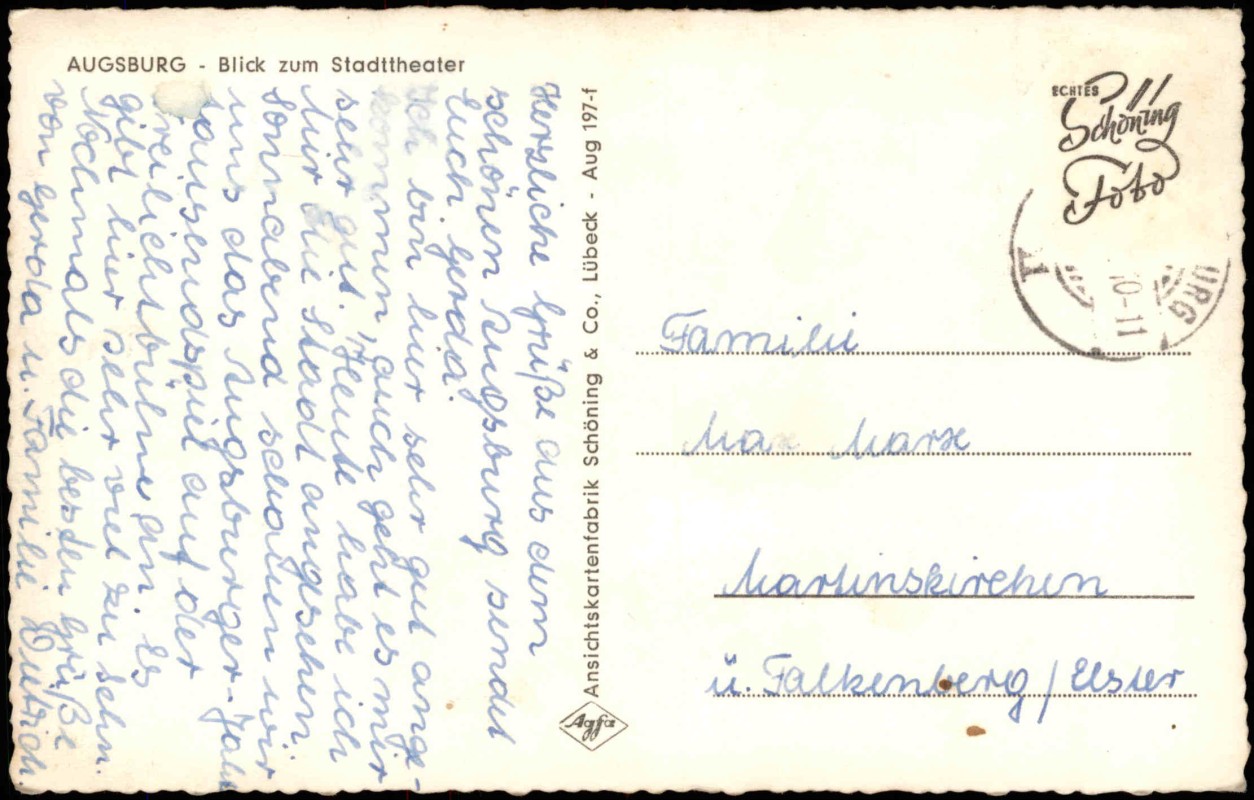 AUGSBURG - Blick zum Stadttheater
Herzliche Grüße aus dem
schönen Augsburg sendet
Euch Gerda.
Ich bin hier sehr gut ange-
kommen, auch geht es mir
sehr gut. Heute habe ich
mir die Stadt angesehen.
Sonnabend schauen wir
uns das Augsburger-
tausendspiel auf der
Freilichtbühne an. Es
gibt hier sehr viel zu sehn.
Nochmals die besten Grüße
von Gerda u. Familie
Ansichtskartenfabrik Schöning & Co., Lübeck - Aug 197-f
Agfa
ECHTES
Schöning
Foto
URG
10-11
Familie
Max Marx
Martinskirchen
ü. Falkenberg/Elster